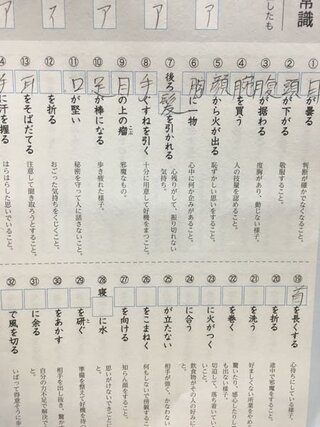 常識
したも
ア
ア
ア
ア
ア
目が曇る
判断が確かでなくなること。
② 頭が下がる
敬服すること。
③ 腹が据わる
度胸があり、動じない様子。
④ 腕を買う
人の技量を認めること。
⑤ から火が出る
恥ずかしい思いをすること。
⑥ 胸に一物
心中に何か企みがあること。
⑦ 後ろ髪を引かれる
心残りがして、振り切れない
気持ち。
⑧ 手ぐすねを引く
十分に用意して好機をまつこと。
⑨ 目の上の瘤
こぶ
邪魔なもの。
⑩ 足が棒になる
歩き疲れた様子。
⑪ 口が堅い
秘密を守って人に話さないこと。
⑫ を折る
おごった気持ちをくじくこと。
⑬ 耳をそばだてる
注意して聞き取ろうとすること。
手に汗を握る
はらはらした思いでいること。
⑲ 首を長くする
心待ちにしている様子。
⑳ を折る
途中で邪魔をすること。
㉑ を洗う
好ましくない所業をやめ
㉒ を巻く
驚いたり、感心したり
も出ない様子。
㉓ に火がつく
切迫して、落ち着いてい
ないこと。
㉔ に合う
飲食物がその人の好みに
㉕ が立たない
相手が強く、かなわない
㉖ をこまねく
何もしないで傍観するこ
㉗ を向ける
知らん顔をすること。
㉘ 寝 に水
思いがけないできごと
㉙ を研ぐ
準備を整えて好機を待
㉚ をあかす
相手を出し抜き、驚か
㉛ に余る
自分の力不足で解決で
㉜ で風を切る
いばって得意そうに歩